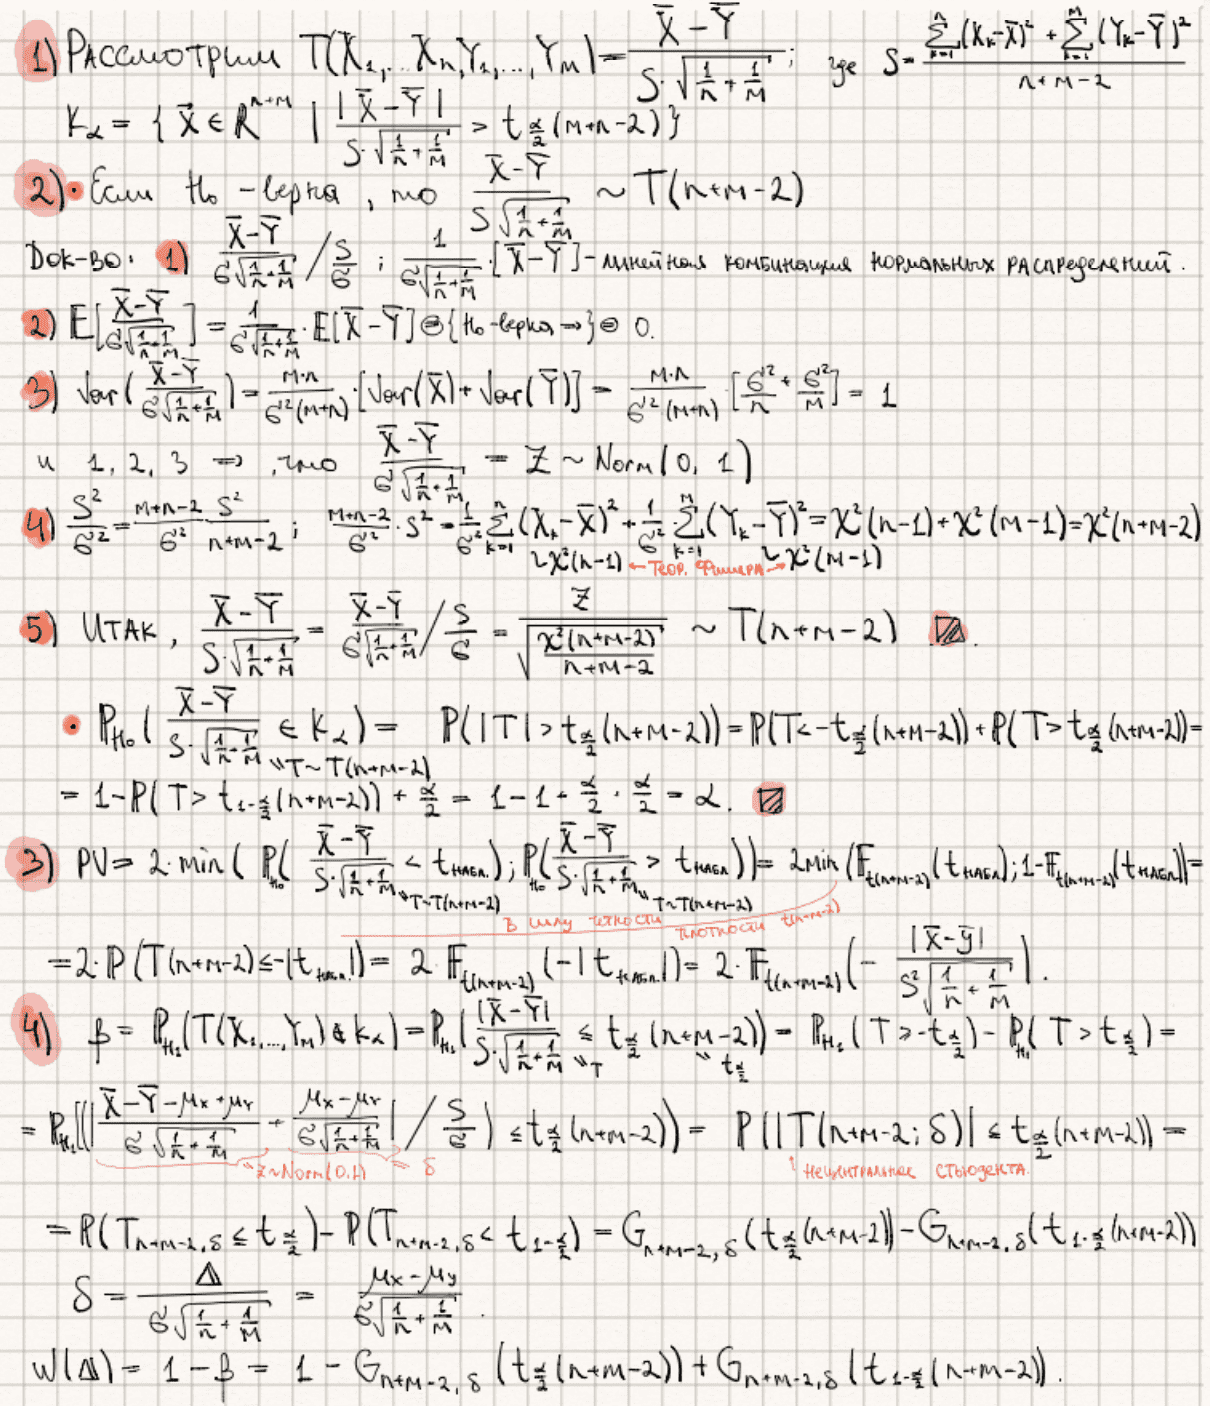 1) Рассмотрим T(X₁,...Xₙ,Y₁,...,Yₘ) = (X̄ - Ȳ)/(S·√(1/n + 1/m)); где S = (∑ₖ₌₁ⁿ(Xₖ-X̄)² + ∑ₖ₌₁ᵐ(Yₖ-Ȳ)²)/(n+m-2)
K_α = { X⃗ ∈ ℝⁿ⁺ᵐ | |X̄ - Ȳ|/(S·√(1/n + 1/m)) > t_{α/2}(m+n-2) }
2) • Если H₀ - верна, то (X̄ - Ȳ)/(S√(1/n + 1/m)) ~ T(n+m-2)
Док-во: 1) (X̄ - Ȳ)/(σ√(1/n + 1/m)) / (S/σ) ; 1/(σ√(1/n + 1/m))·[X̄ - Ȳ] - линейная комбинация нормальных распределений.
2) E[(X̄ - Ȳ)/(σ√(1/n + 1/m))] = 1/(σ√(1/n + 1/m)) · E[X̄ - Ȳ] ⊜ {H₀-верна ⇒} ⊜ 0.
3) Var((X̄ - Ȳ)/(σ√(1/n + 1/m))) = m·n/(σ²(m+n)) · [Var(X̄) + Var(Ȳ)] = m·n/(σ²·(m+n)) · [σ²/n + σ²/m] = 1
и 1, 2, 3 ⇒ , что (X̄ - Ȳ)/(σ√(1/n + 1/m)) = Z ~ Norm(0, 1)
4) S²/σ² = (m+n-2)/σ² S²/(n+m-2) ; (m+n-2)/σ² · S² = 1/σ² ∑ₖ₌₁ⁿ(Xₖ-X̄)² + 1/σ² ∑ₖ₌₁ᵐ(Yₖ-Ȳ)² = χ²(n-1) + χ²(m-1) = χ²(n+m-2)
~χ²(n-1) ← Теор. Фишера → ~χ²(m-1)
5) Итак, (X̄ - Ȳ)/(S·√(1/n + 1/m)) = (X̄ - Ȳ)/(σ√(1/n + 1/m)) / (S/σ) = Z/√(χ²(n+m-2)/(n+m-2)) ~ T(n+m-2)
• P_{H₀}((X̄ - Ȳ)/(S·√(1/n + 1/m)) ∈ K_α) = P(|T| > t_{α/2}(n+m-2)) = P(T < -t_{α/2}(n+m-2)) + P(T > t_{α/2}(n+m-2)) =
"T~T(n+m-2)
= 1 - P(T > t_{1-α/2}(n+m-2)) + α/2 = 1 - 1 + α/2 + α/2 = α.
3) PV = 2·min( P_{H₀}((X̄ - Ȳ)/(S·√(1/n + 1/m)) < t_набл.); P_{H₀}((X̄ - Ȳ)/(S·√(1/n + 1/m)) > t_набл)) = 2min(F_{t(n+m-2)}(t_набл); 1-F_{t(n+m-2)}(t_набл)) =
"T~T(n+m-2) "T~T(n+m-2)
в силу чётности плотности t(n+m-2)
= 2·P(T(n+m-2) ≤ -|t_набл.|) = 2·F_{t(n+m-2)}(-|t_набл.|) = 2·F_{t(n+m-2)}(- |x̄ - ȳ|/(S²√(1/n + 1/m))).
4) β = P_{H₁}(T(X₁,...,Yₘ) ∉ K_α) = P_{H₁}(|X̄ - Ȳ|/(S·√(1/n + 1/m)) ≤ t_{α/2}(n+m-2)) = P_{H₁}(T > -t_{α/2}) - P_{H₁}(T > t_{α/2}) =
"T " t_{α/2}
= P_{H₁}((|(X̄ - Ȳ - μₓ + μ_Y)/(σ√(1/n + 1/m)) + (μₓ - μ_Y)/(σ√(1/n + 1/m))| / (S/σ)) ≤ t_{α/2}(n+m-2)) = P(|T(n+m-2; δ)| ≤ t_{α/2}(n+m-2)) =
"Z~Norm(0,1) = δ нецентральное Стьюдента.
= P(T_{n+m-2,δ} ≤ t_{α/2}) - P(T_{n+m-2,δ} < t_{1-α/2}) = G_{n+m-2,δ}(t_{α/2}(n+m-2)) - G_{n+m-2,δ}(t_{1-α/2}(n+m-2))
δ = Δ/(σ√(1/n + 1/m)) = (μₓ - μ_y)/(σ√(1/n + 1/m)).
W(Δ) = 1 - β = 1 - G_{n+m-2,δ}(t_{α/2}(n+m-2)) + G_{n+m-2,δ}(t_{1-α/2}(n+m-2)).